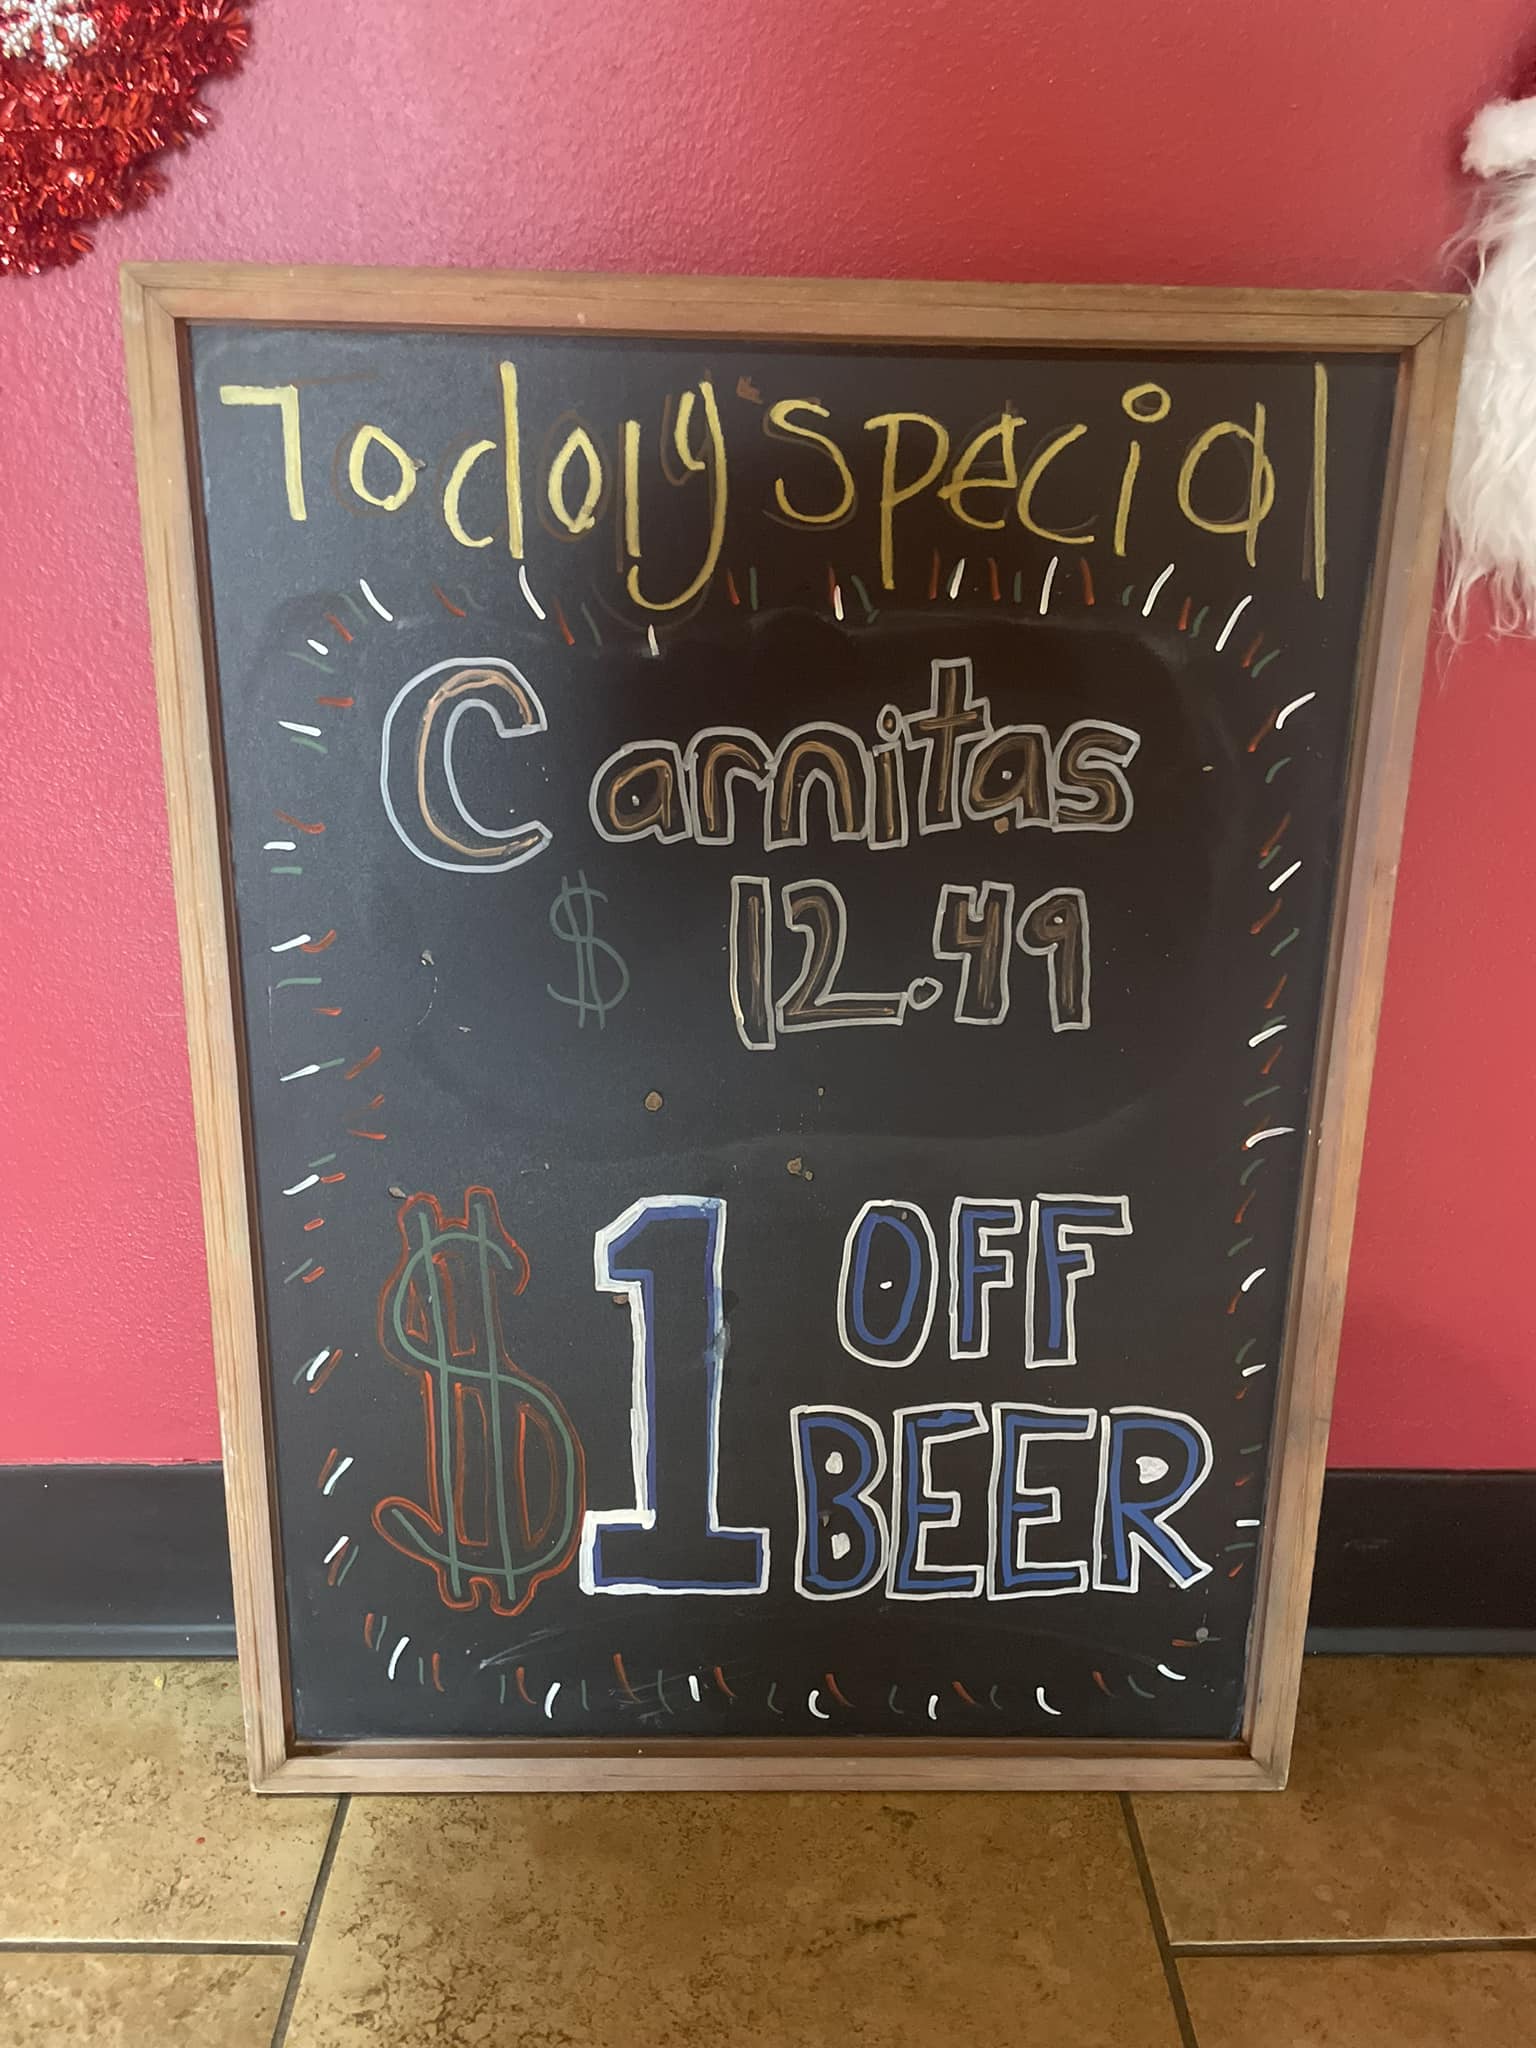 Today's Special
Carnitas
$ 12.49
$1 OFF
BEER